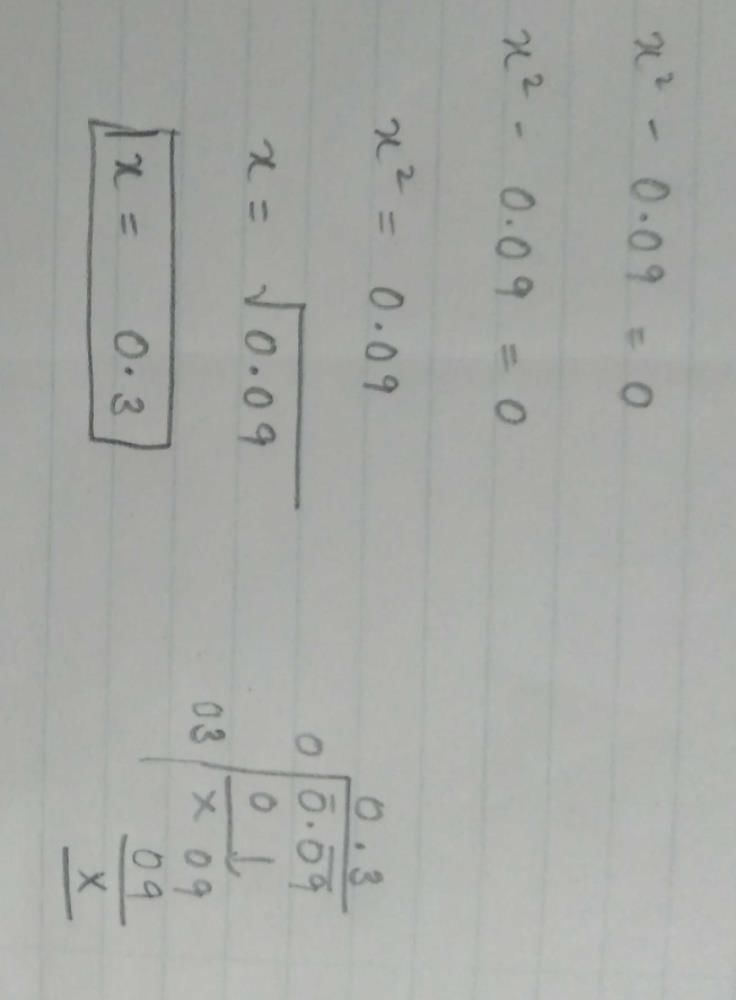 x² - 0.09 = 0
x² - 0.09 = 0
x² = 0.09
x = √0.09
x = 0.3
0.3
0 0.09
0 ↓
03 x 09
09
x